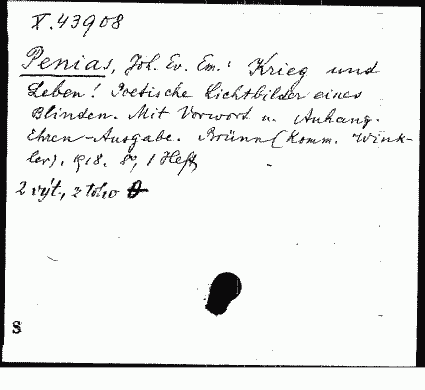 X.43908
Penias, Joh. Ev. Em.: Krieg und
Leben! Poetische Lichtbilder eines
Blinden. Mit Vorwort u. Anhang.
Ehren-Ausgabe. Brünn (Komm. Wink-
ler), 1918. 8°, 1 Heft
2 výt., z toho
S